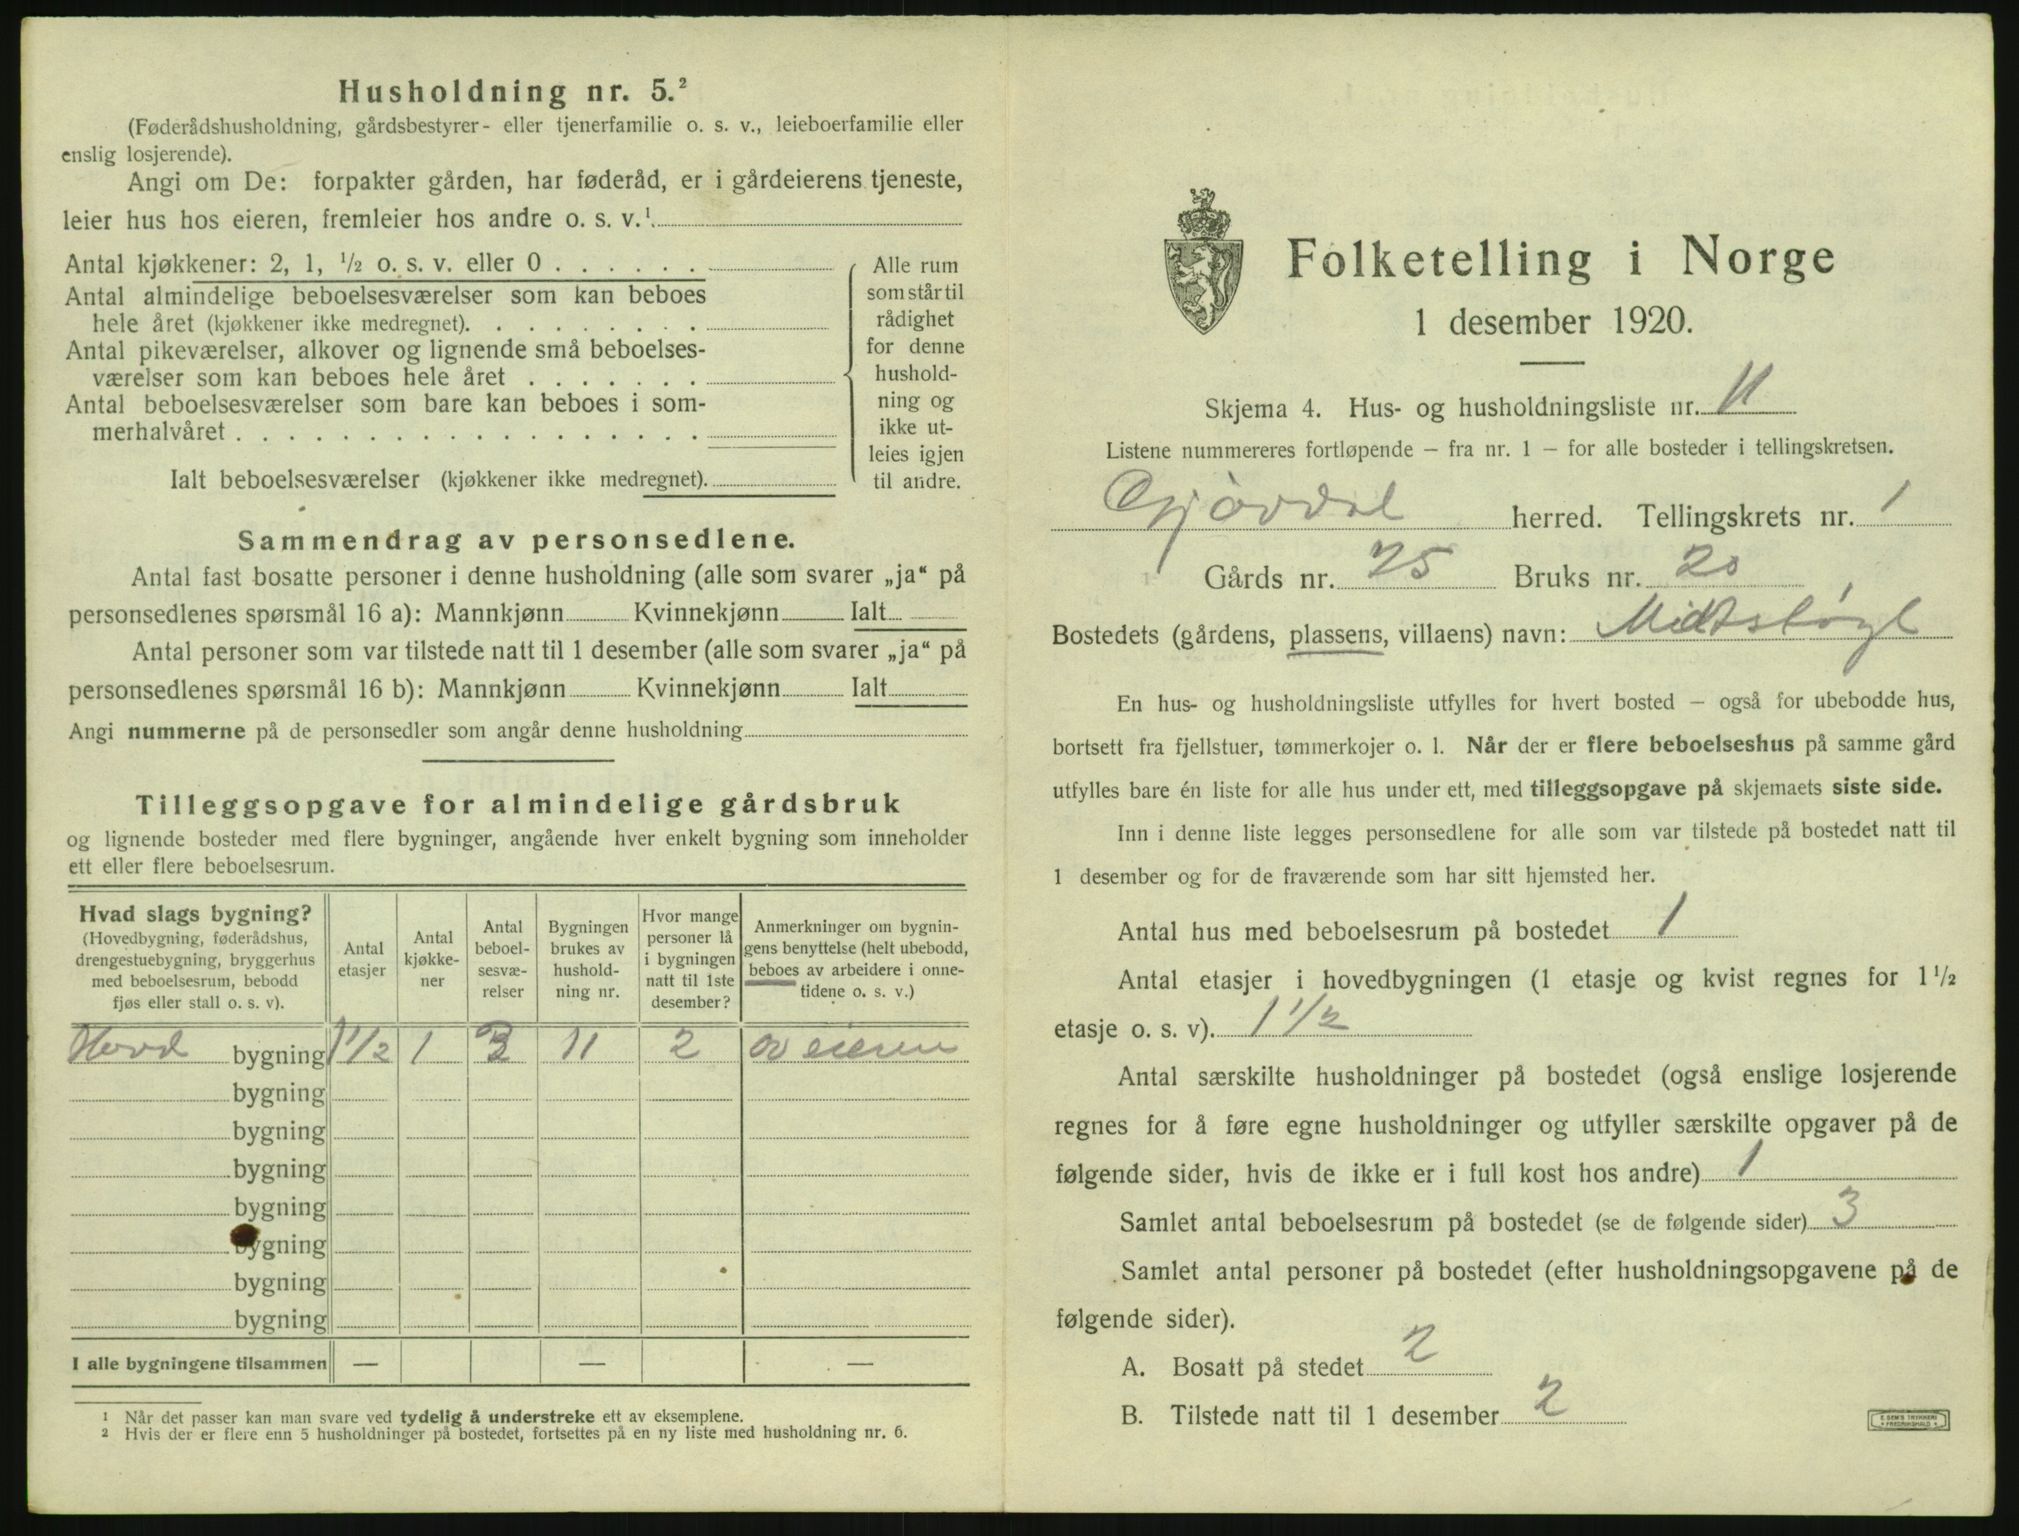 Husholdning nr. 5.²
(Føderådshusholdning, gårdsbestyrer- eller tjenerfamilie o. s. v., leieboerfamilie eller
enslig losjerende).
Angi om De: forpakter gården, har føderåd, er i gårdeierens tjeneste,
leier hus hos eieren, fremleier hos andre o. s. v.¹
Antal kjøkkener: 2, 1, ½ o. s. v. eller 0 . . . . . .
Antal almindelige beboelsesværelser som kan beboes
hele året (kjøkkener ikke medregnet). . . . . . . . .
Antal pikeværelser, alkover og lignende små beboelses-
værelser som kan beboes hele året . . . . . . .
Antal beboelsesværelser som bare kan beboes i som-
merhalvåret . . . . . . . . . . . . . . . . . .
Ialt beboelsesværelser (kjøkkener ikke medregnet).
Alle rum
som står til
rådighet
for denne
hushold-
ning og
ikke ut-
leies igjen
til andre.
Sammendrag av personsedlene.
Antal fast bosatte personer i denne husholdning (alle som svarer „ja“ på
personsedlenes spørsmål 16 a): Mannkjønn Kvinnekjønn Ialt
Antal personer som var tilstede natt til 1 desember (alle som svarer „ja“ på
personsedlenes spørsmål 16 b): Mannkjønn Kvinnekjønn Ialt
Angi nummerne på de personsedler som angår denne husholdning
Tilleggsopgave for almindelige gårdsbruk
og lignende bosteder med flere bygninger, angående hver enkelt bygning som inneholder
ett eller flere beboelsesrum.
Hvad slags bygning?
(Hovedbygning, føderådshus,
drengestuebygning, bryggerhus
med beboelsesrum, bebodd
fjøs eller stall o. s. v).
Antal
etasjer
Antal
kjøkke-
ner
Antal
beboel-
sesvæ-
relser
Bygningen
brukes av
hushold-
ning nr.
Hvor mange
personer lå
i bygningen
natt til 1ste
desember?
Anmerkninger om bygnin-
gens benyttelse (helt ubebodd,
beboes av arbeidere i onne-
tidene o. s. v.)
Hovd bygning 1½ 1 3 11 2 av eieren
bygning
bygning
bygning
bygning
bygning
bygning
bygning
I alle bygningene tilsammen — — —
1 Når det passer kan man svare ved tydelig å understreke ett av eksemplene.
2 Hvis der er flere enn 5 husholdninger på bostedet, fortsettes på en ny liste med husholdning nr. 6.
Folketelling i Norge
1 desember 1920.
Skjema 4. Hus- og husholdningsliste nr. 11
Listene nummereres fortløpende – fra nr. 1 – for alle bosteder i tellingskretsen.
Gjøvdal herred. Tellingskrets nr. 1
Gårds nr. 25 Bruks nr. 20
Bostedets (gårdens, plassens, villaens) navn:
En hus- og husholdningsliste utfylles for hvert bosted – også for ubebodde hus,
bortsett fra fjellstuer, tømmerkojer o. l. Når der er flere beboelseshus på samme gård
utfylles bare én liste for alle hus under ett, med tilleggsopgave på skjemaets siste side.
Inn i denne liste legges personsedlene for alle som var tilstede på bostedet natt til
1 desember og for de fraværende som har sitt hjemsted her.
Antal hus med beboelsesrum på bostedet 1
Antal etasjer i hovedbygningen (1 etasje og kvist regnes for 1½
etasje o. s. v). 1½
Antal særskilte husholdninger på bostedet (også enslige losjerende
regnes for å føre egne husholdninger og utfyller særskilte opgaver på de
følgende sider, hvis de ikke er i full kost hos andre) 1
Samlet antal beboelsesrum på bostedet (se de følgende sider) 3
Samlet antal personer på bostedet (efter husholdningsopgavene på de
følgende sider).
A. Bosatt på stedet 2
B. Tilstede natt til 1 desember 2
E. SEM'S TRYKKERI
FREDRIKSHALD